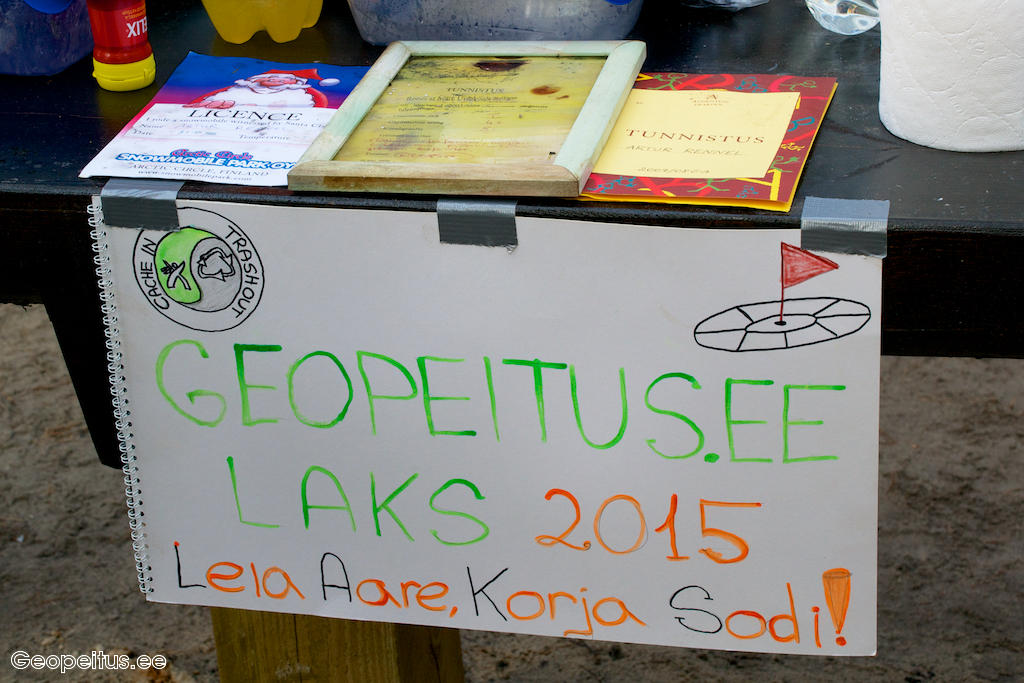 LICENCE
I rode a snowmobile witnessed by Santa Claus
Name
Date Temperature
SNOWMOBILE PARK OY
ARCTIC CIRCLE, FINLAND
www.snowmobilepark.com
TUNNISTUS
TUNNISTUS
ARTUR RENNEL
CACHE IN TRASH OUT
GEOPEITUS.EE
LAKS 2015
Leia Aare, Korja Sodi!
Geopeitus.ee